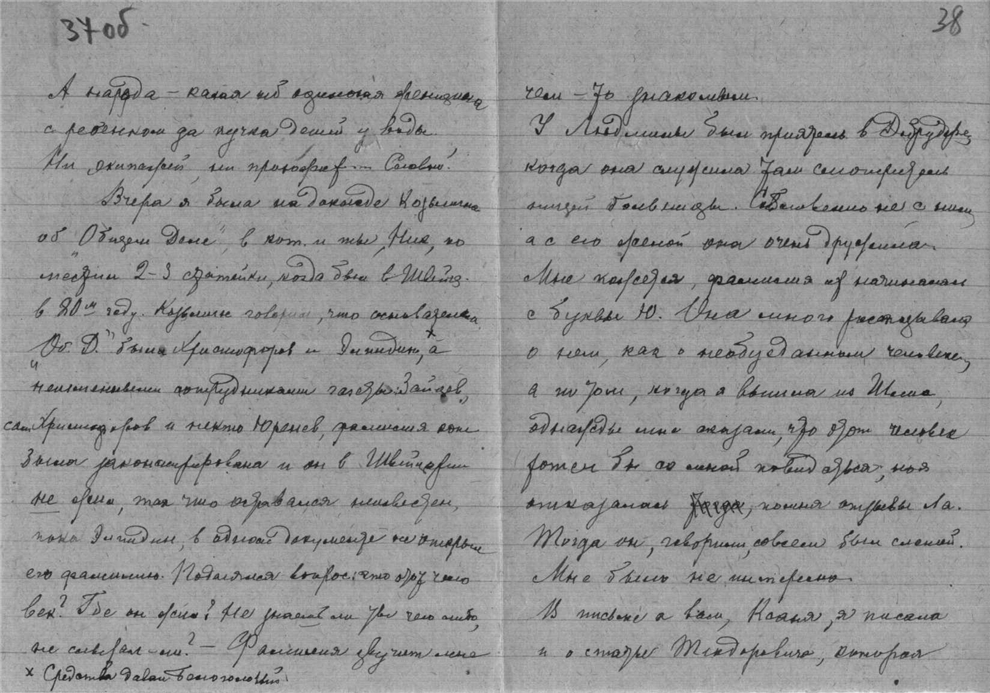 37 об
А народа – какая нб одинокая женщина
с ребенком да кучка детей у воды.
Ни экипажей, ни прохожих ... Соловьи.
Вчера я была на докладе Козьмина
об "Общем Деле", в кот. и ты, Ник, по
местил 2–3 статейки, когда был в Швейц.
в 80ых году. Козьмин говорит, что основателями
"Об. Д." были Христофоров и Элпидин, x а
неизменными сотрудниками газеты: Зайцев,
сам Христофоров и некто Юренев, фамилия кот.
была законспирирована и он в Швейцарии
не жил, так что оставался неизвестен,
пока Элпидин, в одном документе не открыл
его фамилию. Поднялся вопрос: кто этот чело
век? Где он жил? Не знаешь ли ты чего либо,
не слыхал-ли? – Фамилия звучит мне
x Средства давал Белоголовый.
38
чем-то знакомым.
У Людмилы был приятель в Добрудже,
когда она служила там смотрительн
ницей больницы. Собственно не с ним,
а с его женой она очень дружила.
Мне кажется, фамилия их начиналась
с буквы Ю. Она много рассказывала
о нем, как о необузданном человеке,
а потом, когда я вышла из Шлис,
однажды мне сказали, что этот человек
хотел бы со мной повидаться, но я
отказалась, помня отзывы Лю.
Тогда он, говорили, совсем был слепой.
Мне было не интересно.
В письме к вам, Ксаня, я писала
и о статье Теодоровича, которая